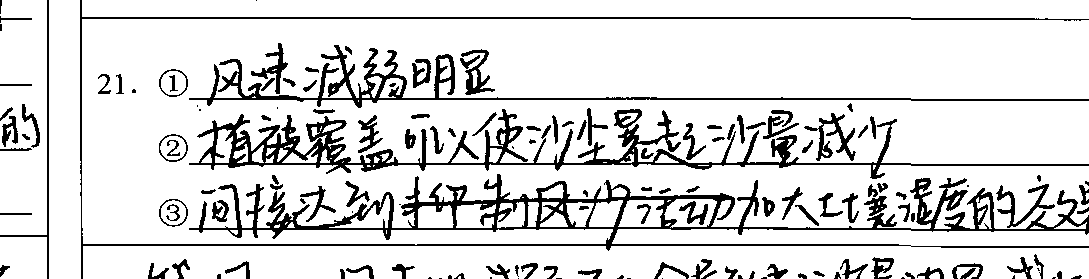 21. ① 风速减弱明显
的
② 植被覆盖可以使沙尘暴起沙量减少
③ 间接达到抑制风沙活动加大土壤湿度的效果